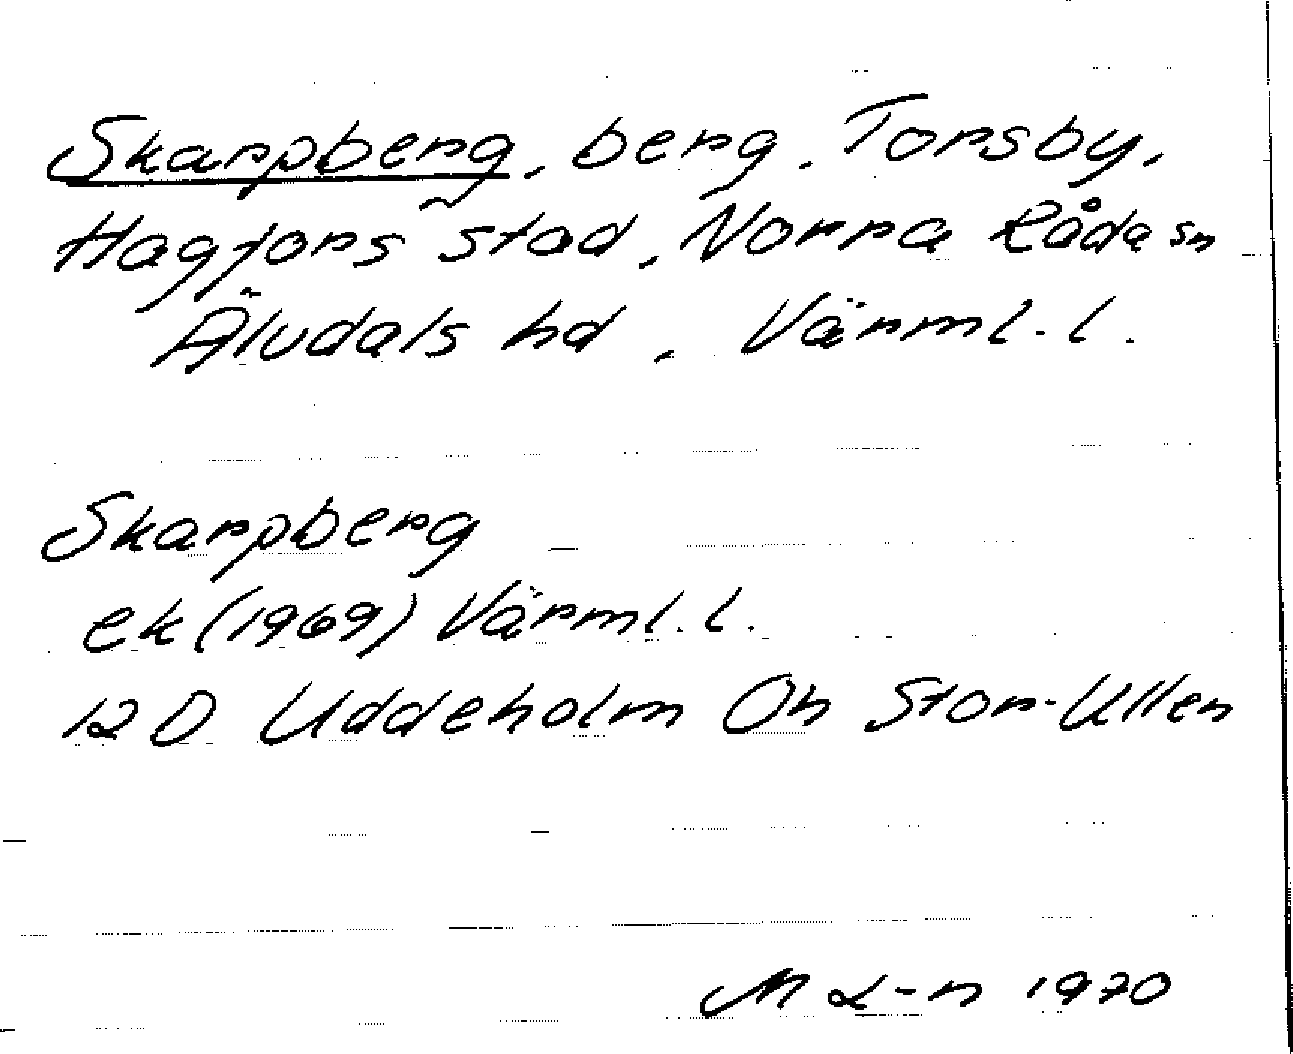 Skarpberg, berg, Torsby,
Hagfors stad, Norra Råda sn
Älvdals hd, Värml. l.
Skarpberg
ek (1969) Värml. l.
12 D Uddeholm Öh Stor-Ullen
M L-n 1970